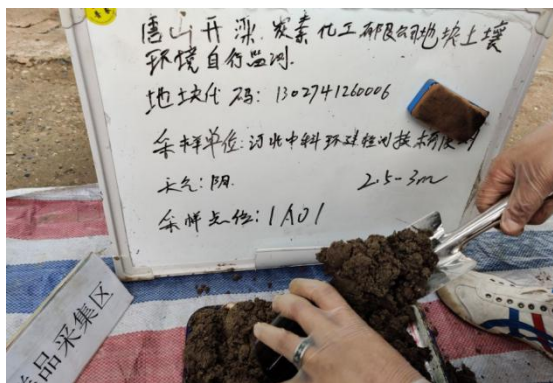 唐山开滦炭素化工有限公司地块土壤
环境自行监测.
地块代码: 1302741260006
采样单位:河北中科环球检测技术有限公司
天气:阴.
2.5-3m
采样点位:1A01
品采集区